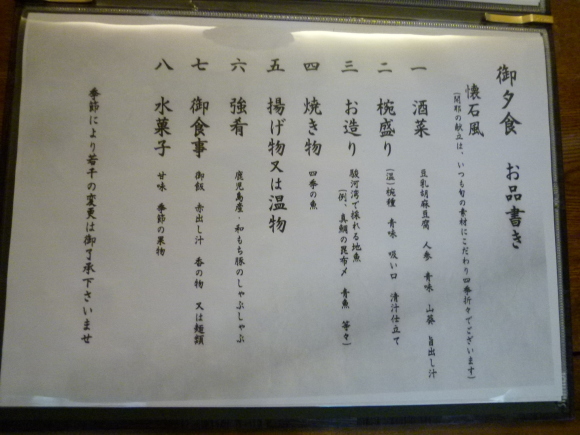 御夕食　お品書き
懐石風
(関邪の献立は、いつも旬の素材にこだわり四季折々でございます)
一　酒菜　豆乳胡麻豆腐　人参　青味　山葵　旨出し汁
二　椀盛り　(温)椀種　青味　吸い口　清汁仕立て
三　お造り　駿河湾で採れる地魚
(例、真鯛の昆布〆　青魚　等々)
四　焼き物　四季の魚
五　揚げ物又は温物
六　強肴　鹿児島産・和もち豚のしゃぶしゃぶ
七　御食事　御飯　赤出し汁　香の物　又は麺類
八　水菓子　甘味　季節の果物
季節により若干の変更は御了承下さいませ